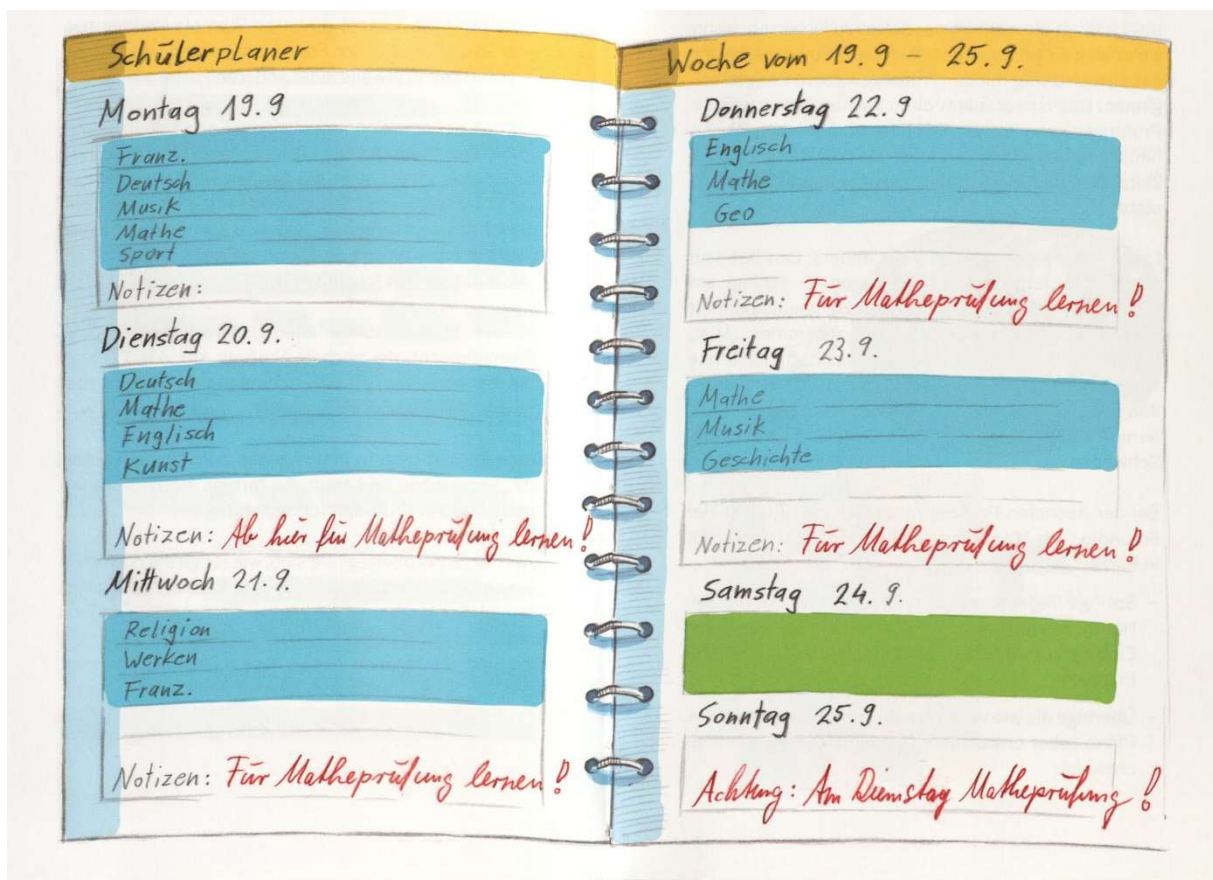 Schülerplaner
Montag 19.9
Franz.
Deutsch
Musik
Mathe
Sport
Notizen:
Dienstag 20.9.
Deutsch
Mathe
Englisch
Kunst
Notizen: Ab hier für Matheprüfung lernen!
Mittwoch 21.9.
Religion
Werken
Franz.
Notizen: Für Matheprüfung lernen!
Woche vom 19.9 - 25.9.
Donnerstag 22.9
Englisch
Mathe
Geo
Notizen: Für Matheprüfung lernen!
Freitag 23.9.
Mathe
Musik
Geschichte
Notizen: Für Matheprüfung lernen!
Samstag 24.9.
Sonntag 25.9.
Achtung: Am Dienstag Matheprüfung!